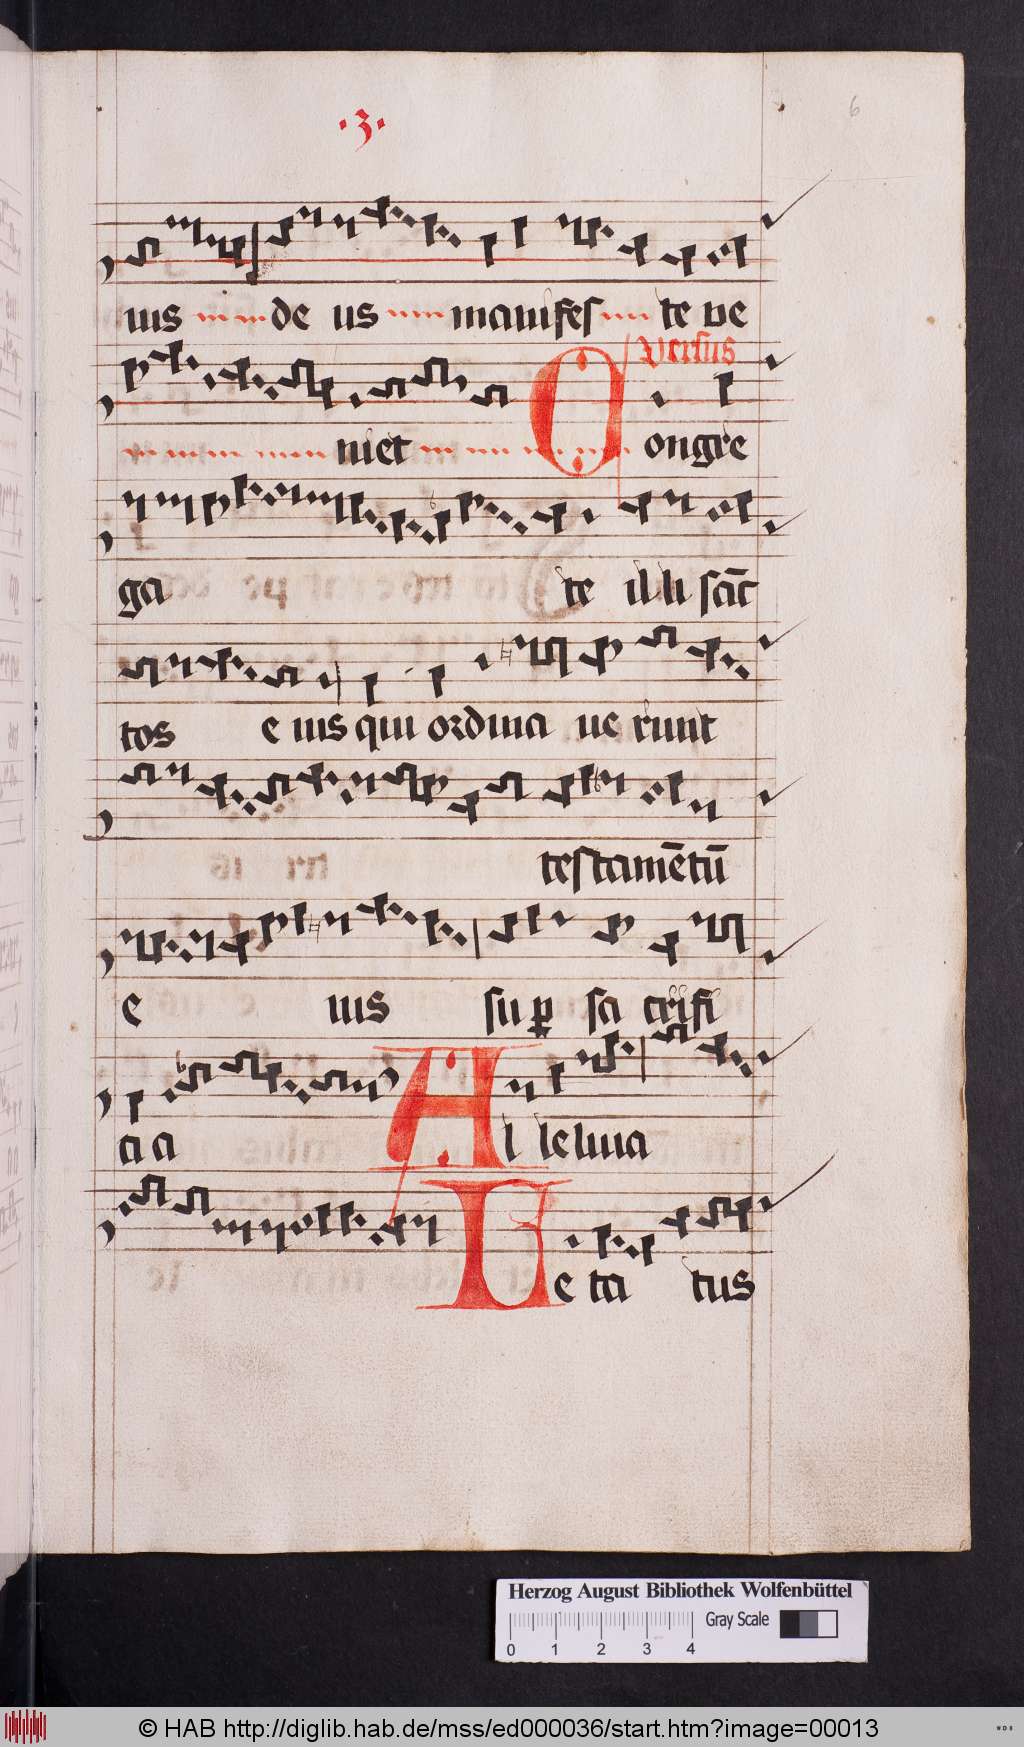 ·3·
6
uis de us manifes te ve
Versus
niet Congre
ga te illi sāc
tos e ius qui ordina ue runt
testamētū
e ius su ꝑ sa crifi
a a Al leluia
Le ta tus
Herzog August Bibliothek Wolfenbüttel
Gray Scale
0 1 2 3 4
© HAB http://diglib.hab.de/mss/ed000036/start.htm?image=00013